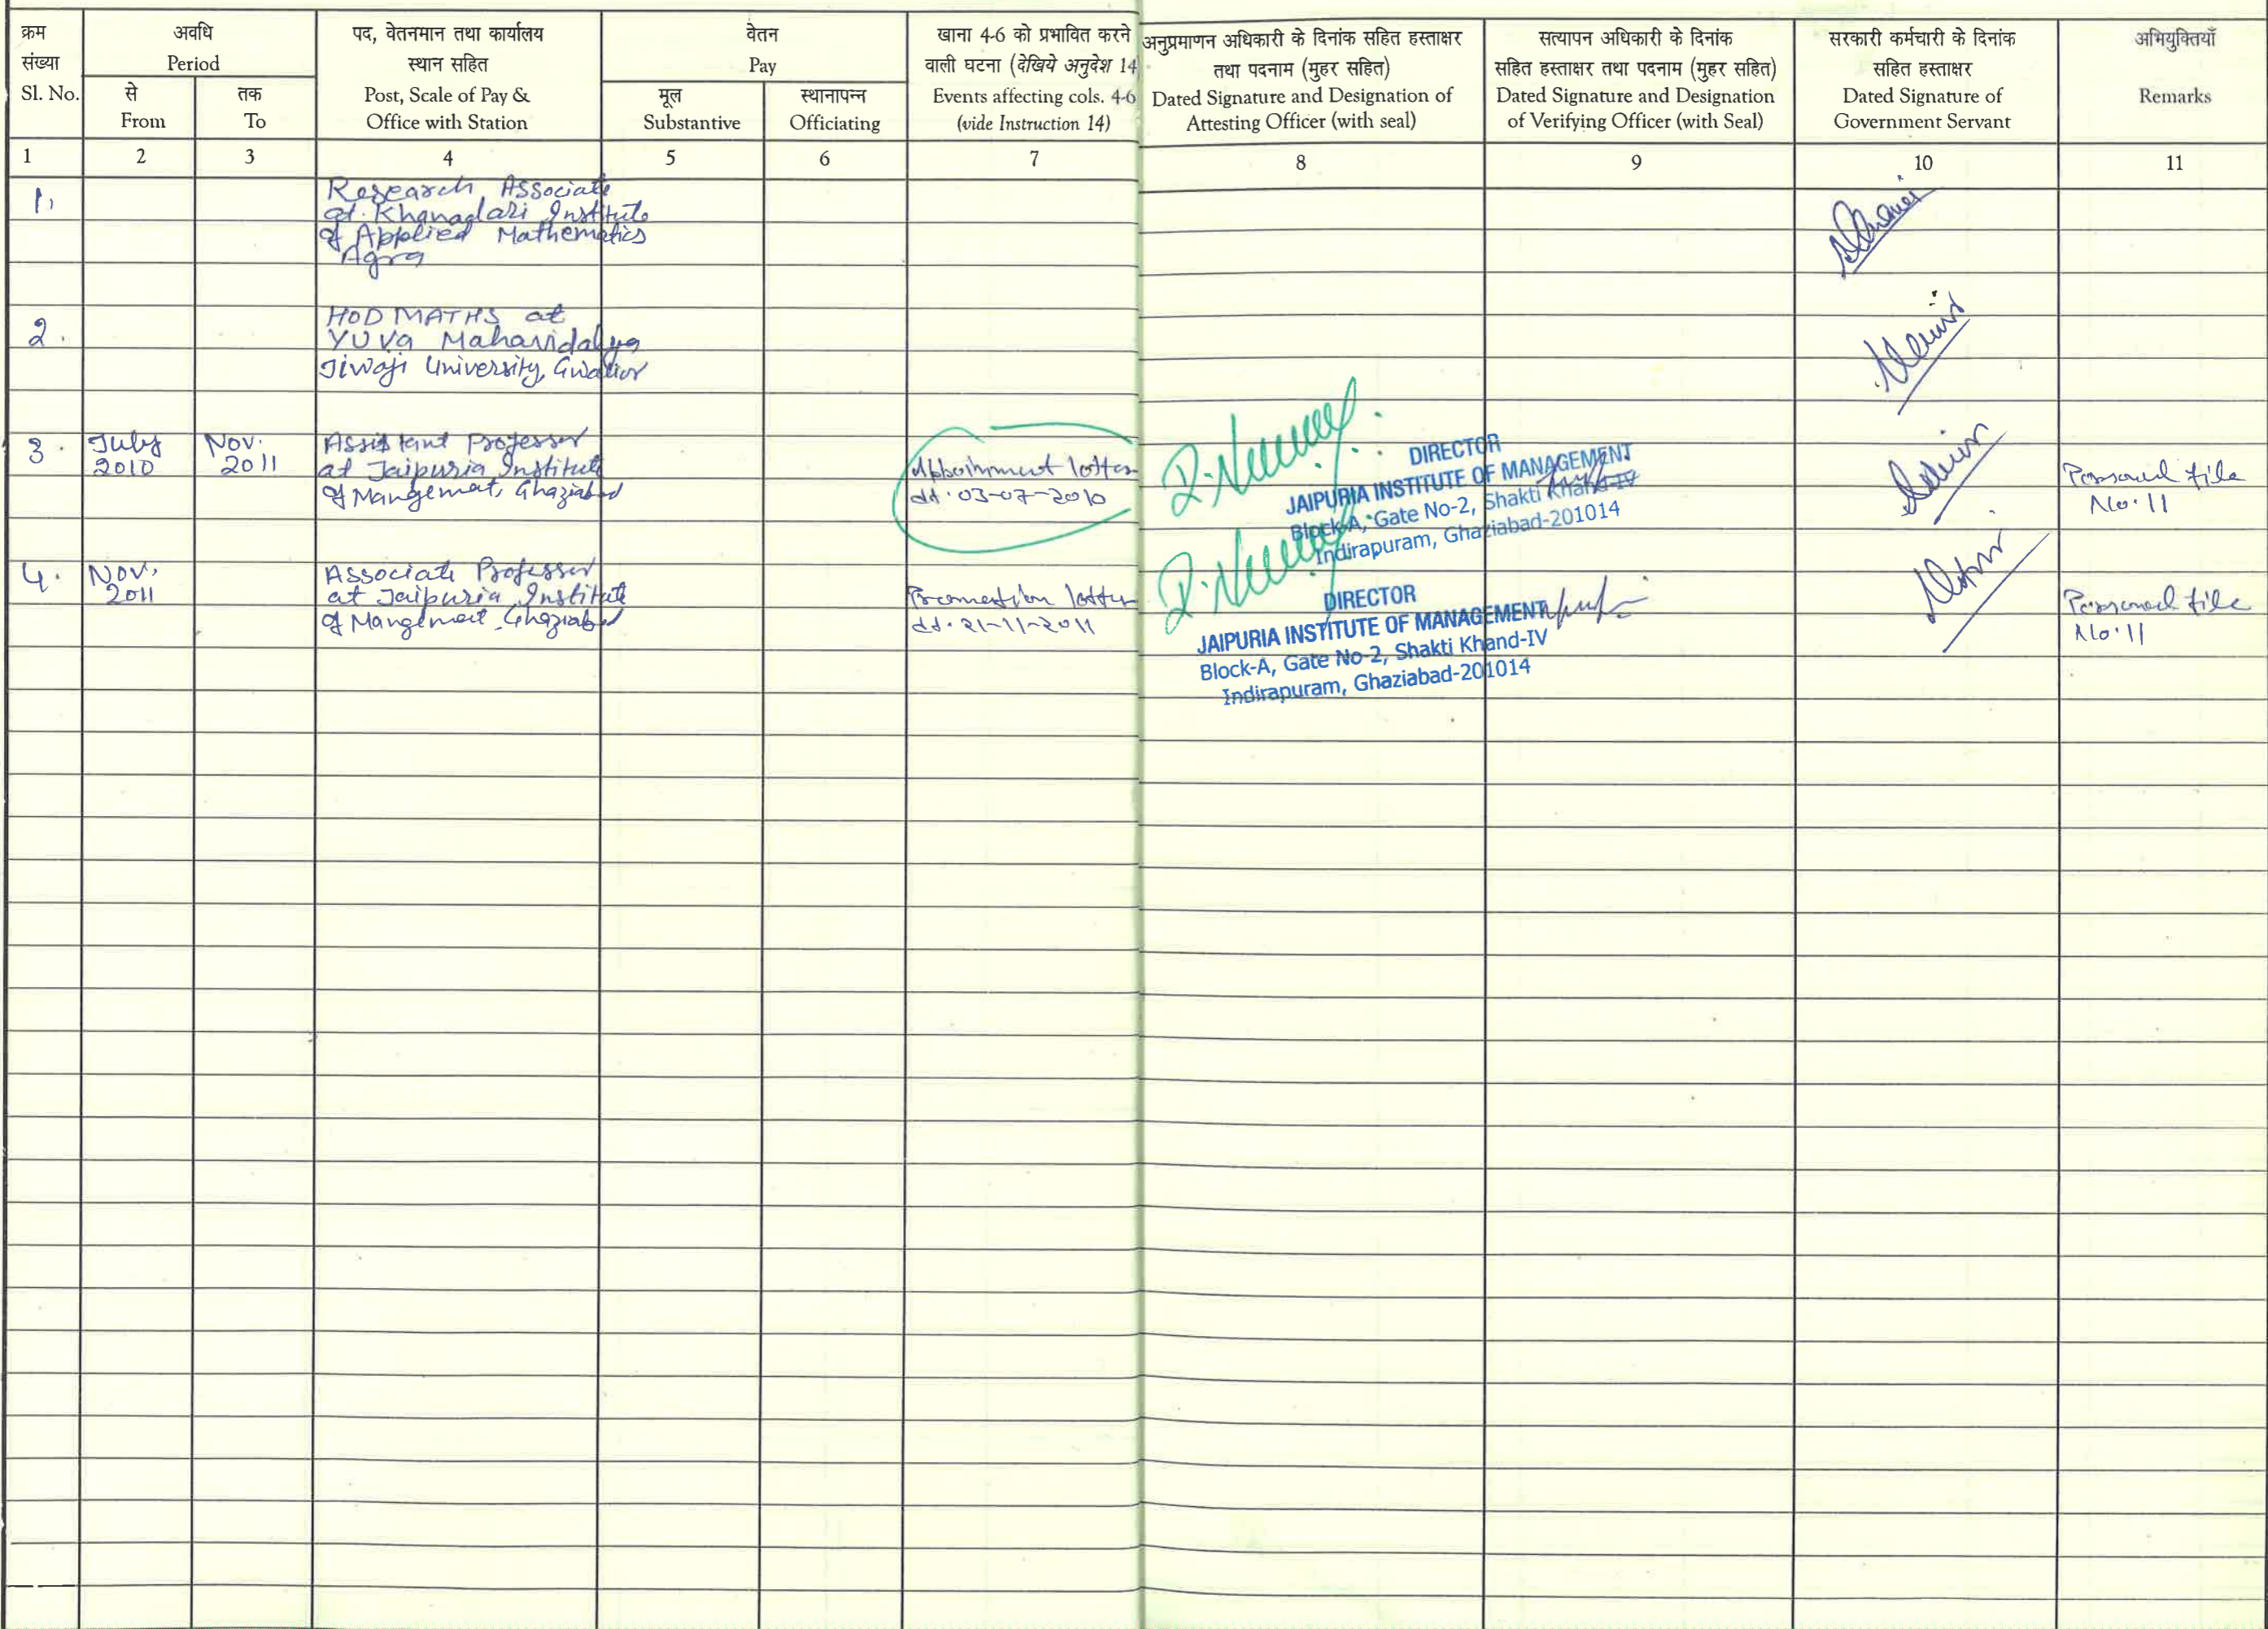 क्रम
संख्या
Sl. No.
अवधि
Period
से
From
तक
To
पद, वेतनमान तथा कार्यालय
स्थान सहित
Post, Scale of Pay &
Office with Station
वेतन
Pay
मूल
Substantive
स्थानापन्न
Officiating
खाना 4-6 को प्रभावित करने
वाली घटना (देखिये अनुदेश 14
Events affecting cols. 4-6
(vide Instruction 14)
अनुप्रमाणन अधिकारी के दिनांक सहित हस्ताक्षर
तथा पदनाम (मुहर सहित)
Dated Signature and Designation of
Attesting Officer (with seal)
सत्यापन अधिकारी के दिनांक
सहित हस्ताक्षर तथा पदनाम (मुहर सहित)
Dated Signature and Designation
of Verifying Officer (with Seal)
सरकारी कर्मचारी के दिनांक
सहित हस्ताक्षर
Dated Signature of
Government Servant
अभियुक्तियाँ
Remarks
1 2 3 4 5 6 7 8 9 10 11
1.
Research Associate
at Khanadari Institute
of Applied Mathematics
Agra
2.
HOD MATHS at
YUVA Mahavidalya
Jiwaji University, Gwalior
3.
July
2010
Nov.
2011
Assistant Professor
at Jaipuria Institute
of Mangemat, Ghaziabad
Appoinment letter
dt. 03-07-2010
DIRECTOR
JAIPURIA INSTITUTE OF MANAGEMENT
Block-A, Gate No-2, Shakti Khand-IV
Indirapuram, Ghaziabad-201014
Personal file
No. 11
4.
Nov.
2011
Associate Professor
at Jaipuria Institute
of Mangemet, Ghaziabad
Promotion letter
dt. 21-11-2011
DIRECTOR
JAIPURIA INSTITUTE OF MANAGEMENT
Block-A, Gate No-2, Shakti Khand-IV
Indirapuram, Ghaziabad-201014
Personal file
No. 11